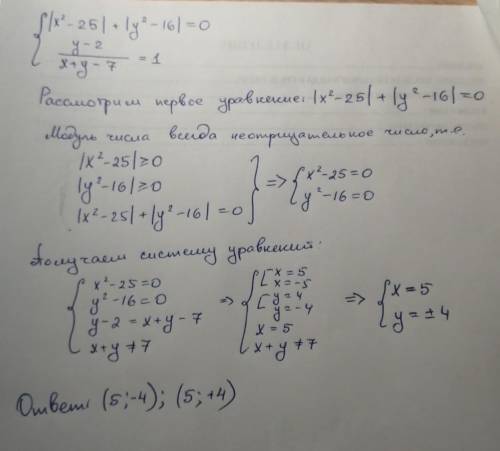 { |x²-25| + |y²-16| = 0
(y-2)/(x+y-7) = 1
Рассмотрим первое уравнение: |x²-25| + |y²-16| = 0
Модуль числа всегда неотрицательное число, т.е.
|x²-25| ≥ 0
|y²-16| ≥ 0
|x²-25| + |y²-16| = 0 } => { x²-25=0
y²-16=0
Получаем систему уравнений:
{ x²-25=0
y²-16=0
y-2 = x+y-7
x+y ≠ 7
=> { [ x=5
x=-5
[ y=4
y=-4
x=5
x+y ≠ 7
=> { x=5
y=±4
Ответ: (5;-4); (5;+4)